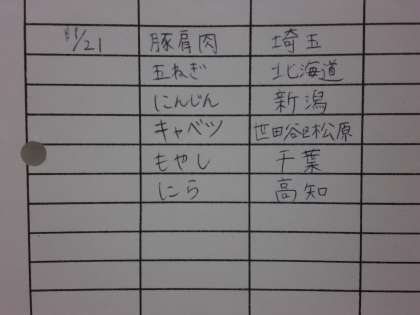 11/21 豚肩肉 埼玉
玉ねぎ 北海道
にんじん 新潟
キャベツ 世田谷区松原
もやし 千葉
にら 高知